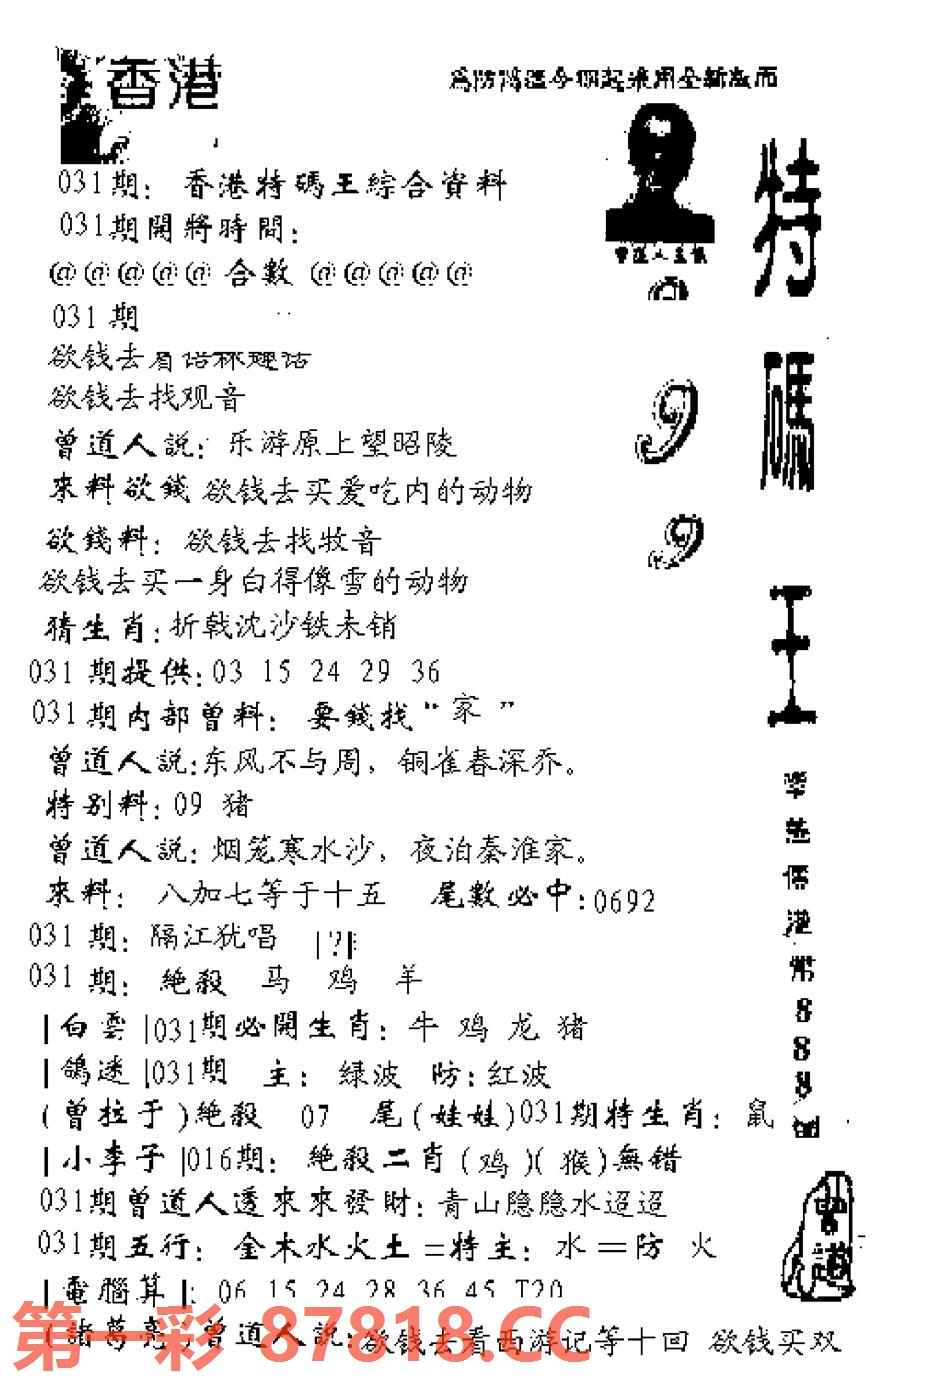 香港
031期：香港特碼王綜合資料
031期開將時間：
@@@@@合數@@@@@
031期
欲钱去
欲钱去找观音
曾道人説：乐游原上望昭陵
來料欲錢 欲钱去买爱吃内的动物
欲錢料：欲钱去找牧音
欲钱去买一身白得像雪的动物
猜生肖：折戟沈沙铁未销
031期提供：03 15 24 29 36
031期内部曾料：要錢找“家”
曾道人説：东风不与周，铜雀春深乔。
特别料：09 猪
曾道人説：烟笼寒水沙，夜泊秦淮家。
來料：八加七等于十五 尾數必中：0692
031期：隔江犹唱 |?|
031期：絶殺 马 鸡 羊
|白雲|031期必開生肖：牛 鸡 龙 猪
|鴿迷|031期 主：绿波 防：红波
(曾拉于)絶殺 07 尾(娃娃)031期特生肖：鼠
|小李子|016期：絶殺二肖(鸡)(猴)無错
031期曾道人透來來發財：青山隐隐水迢迢
031期五行：金木水火土=特主：水=防 火
|電腦算|：06 15 24 28 36 45 T20
(諸葛亮)曾道人説：欲钱去看西游记等十回 欲钱买双
第一彩 87818.CC
特碼王
9
9
港幣888
曾道